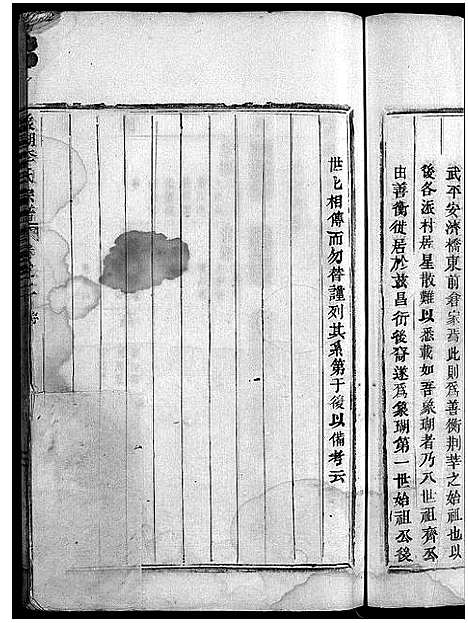 武平安濟橋東前倉家焉此則爲善衡荆莘之始祖也以
後各派村居星散難以悉載如吾象瑚者乃八世祖齊丕
由善衡徙居於茲昌衍後裔遂爲象瑚第一世始祖丕後
世匕相傳而勿替謹列其系第于後以備考云